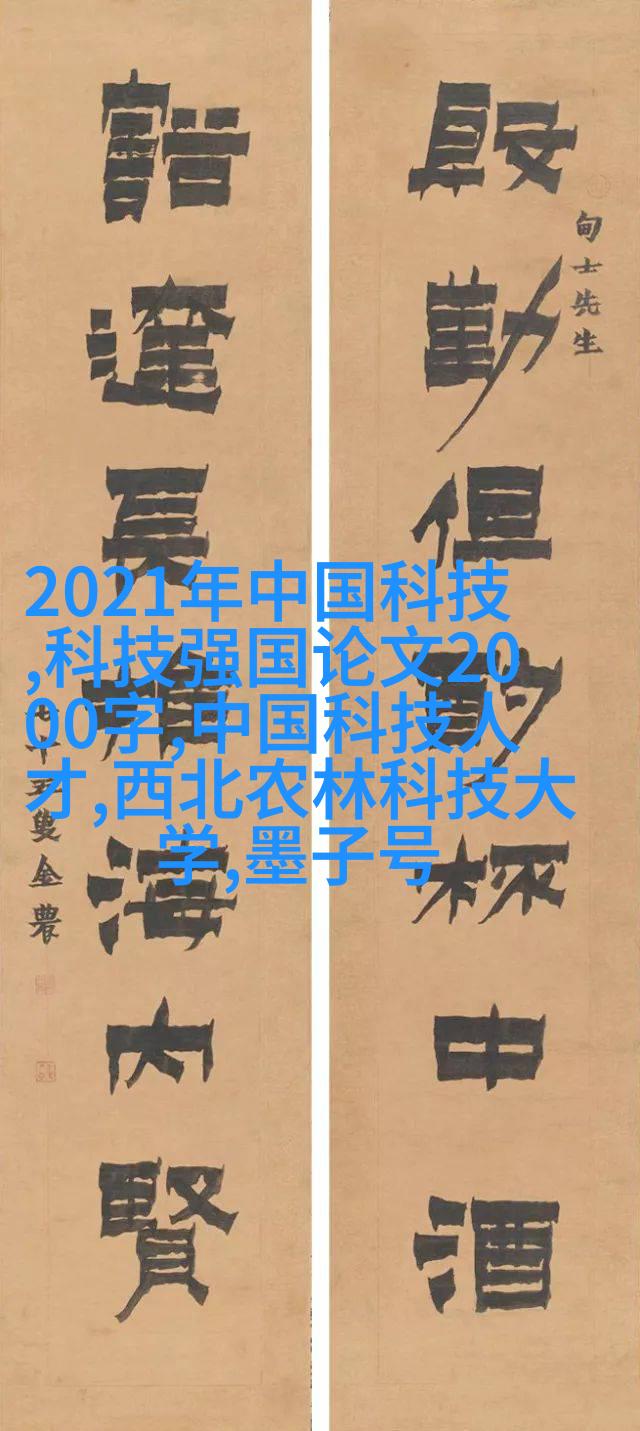 甸士先生
殷勤但酌杯中酒
豁達海內賢
十五叟金農
2021年中国科技
,科技强国论文20
00字,中国科技人
才,西北农林科技大
学,墨子号